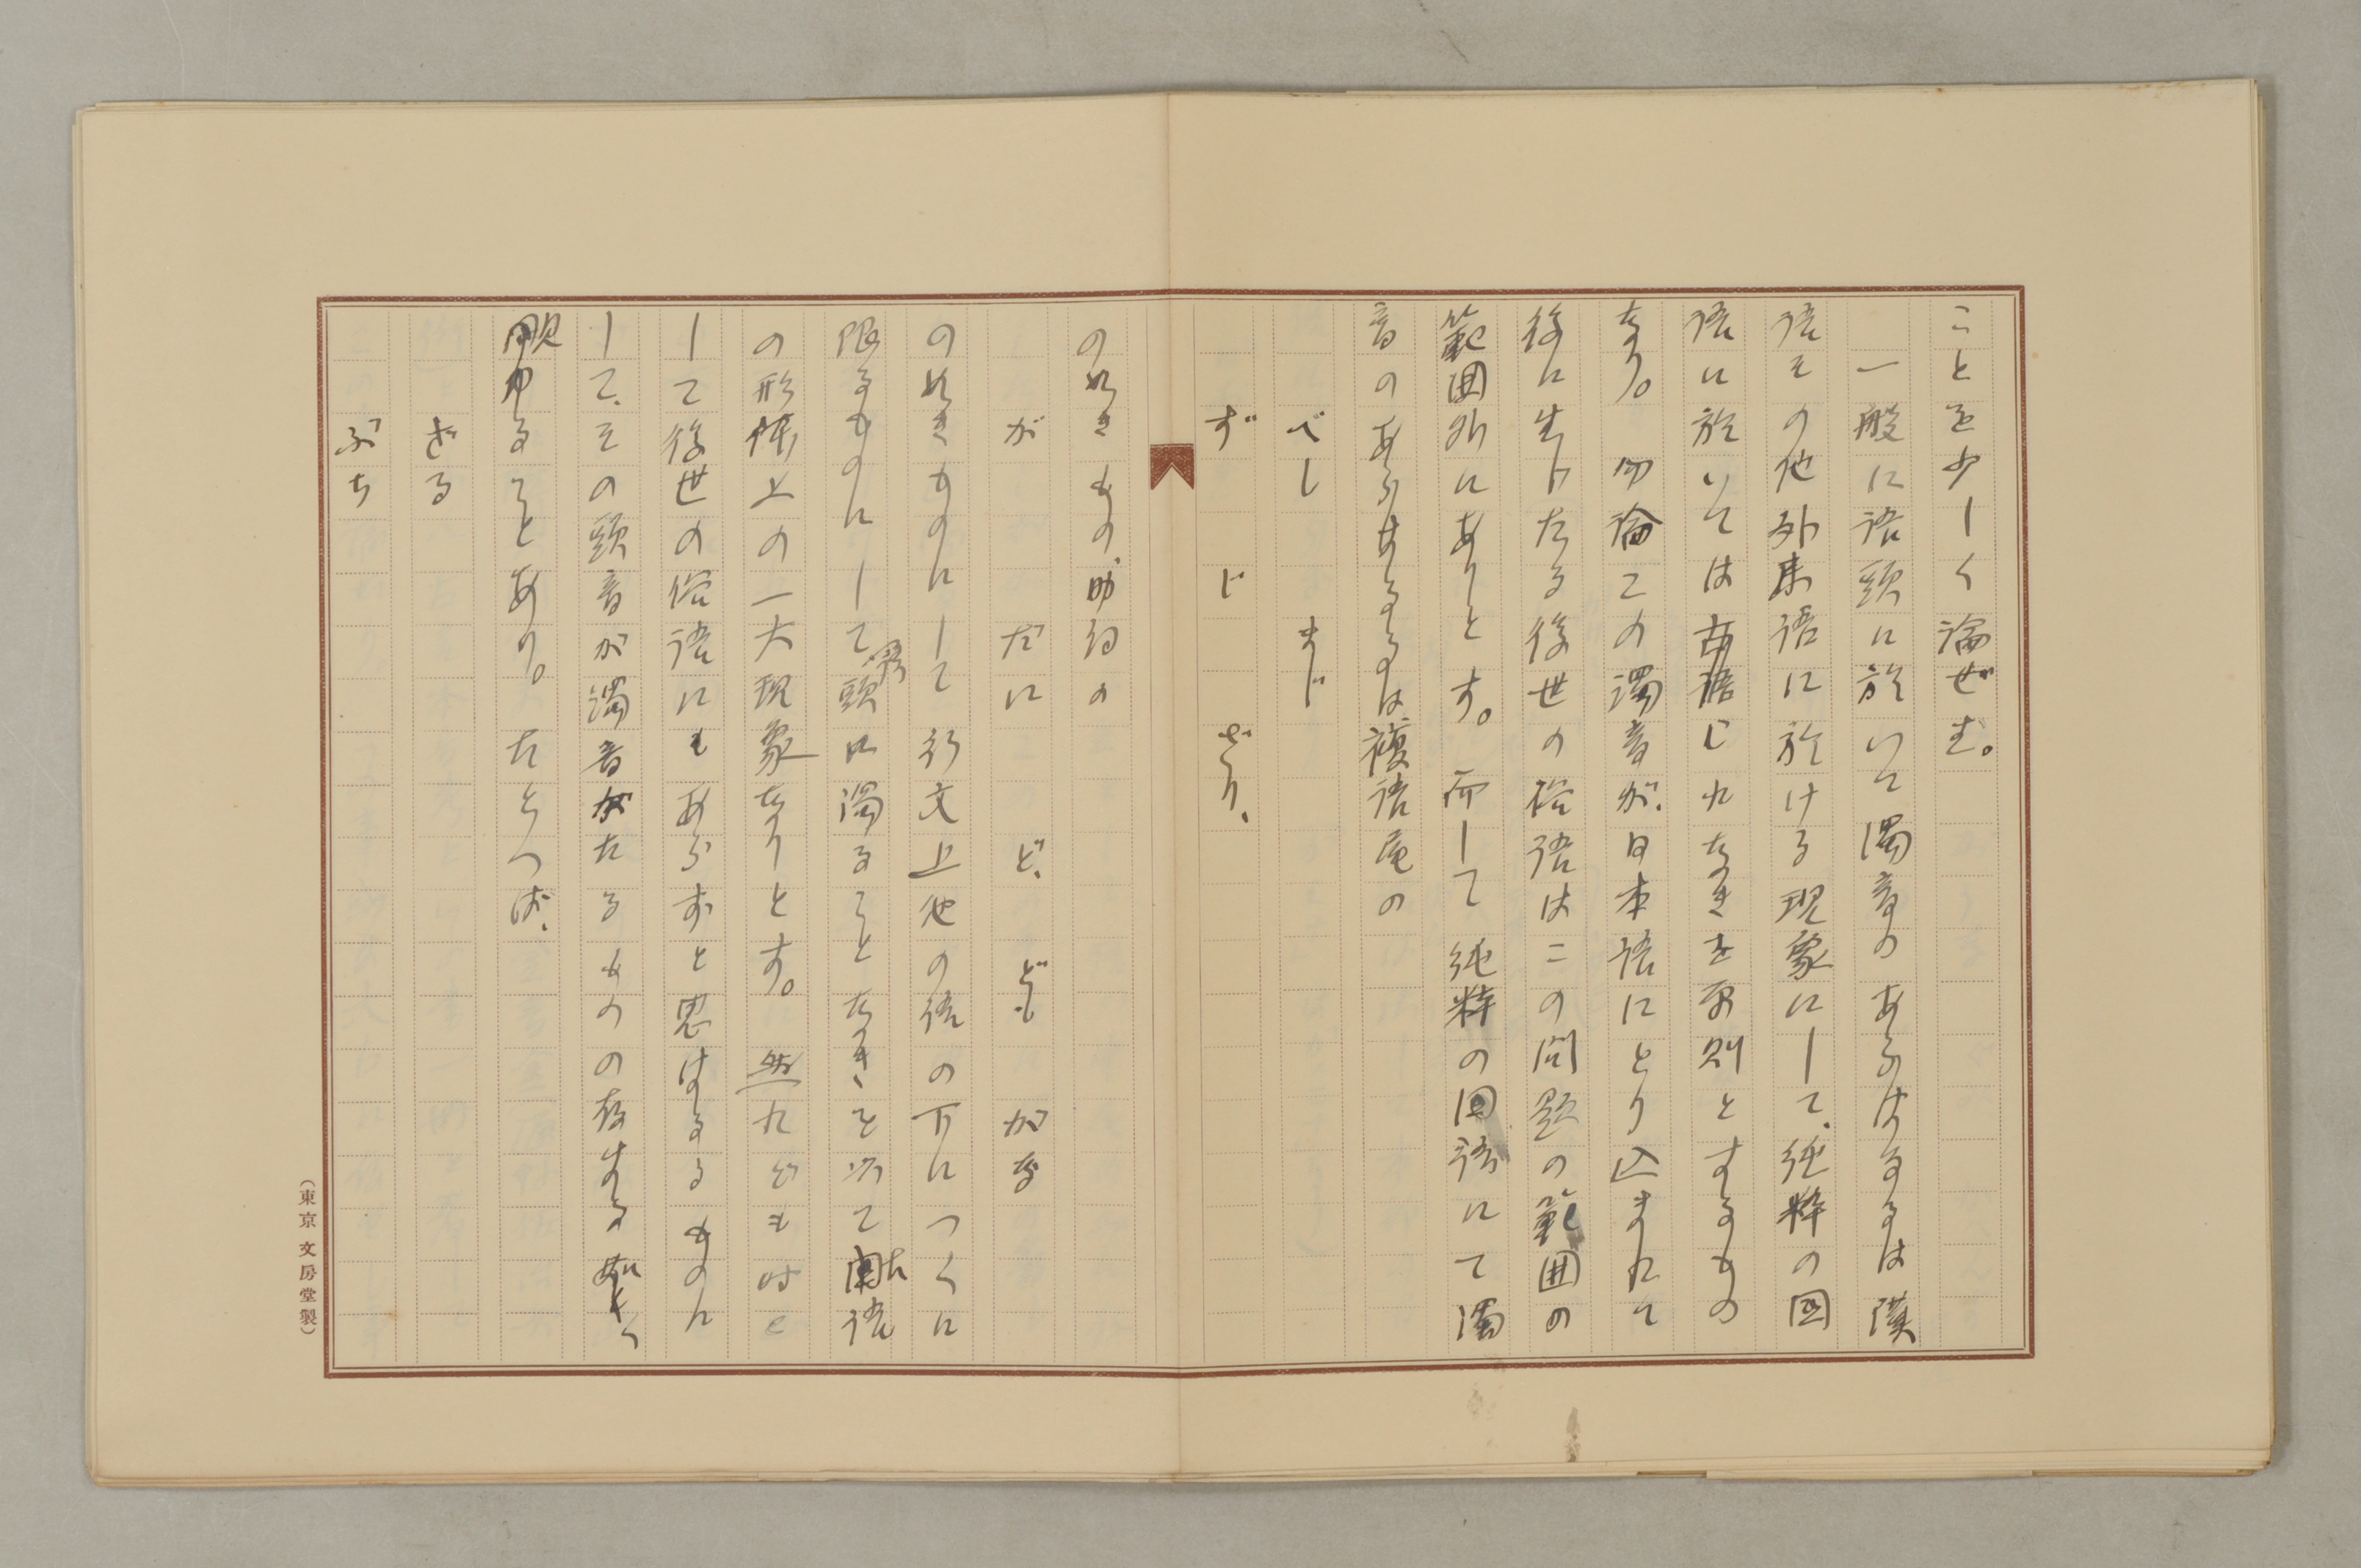 ことを少しく論ぜむ。
一般に語頭に於いて濁音のあらはるゝは漢
語その他外来語に於ける現象にして、純粋の国
語に於いては古語にこれなきを原則とするもの
なり。勿論この濁音が、日本語にとり込まれて
後に生じたる後世の俗語はこの問題の範囲の
範囲外にありとす。而して純粋の国語にて濁
音のあらはるゝは複語尾の
べし まじ
ず じ ざり、
の如きもの、助詞の
が だに ど、ども がな
の如きものにして行文上他の語の下につくに
限るものにして頭に濁ることなきを以て古語
の形体上の一大現象なりとす。然れども時と
して後世の俗語にもあらずと思はるゝものに
して、その頭音が濁音がたるものの存する如く
見ゆることあり。たとへば、
ざる
ぶち
(東京文房堂製)